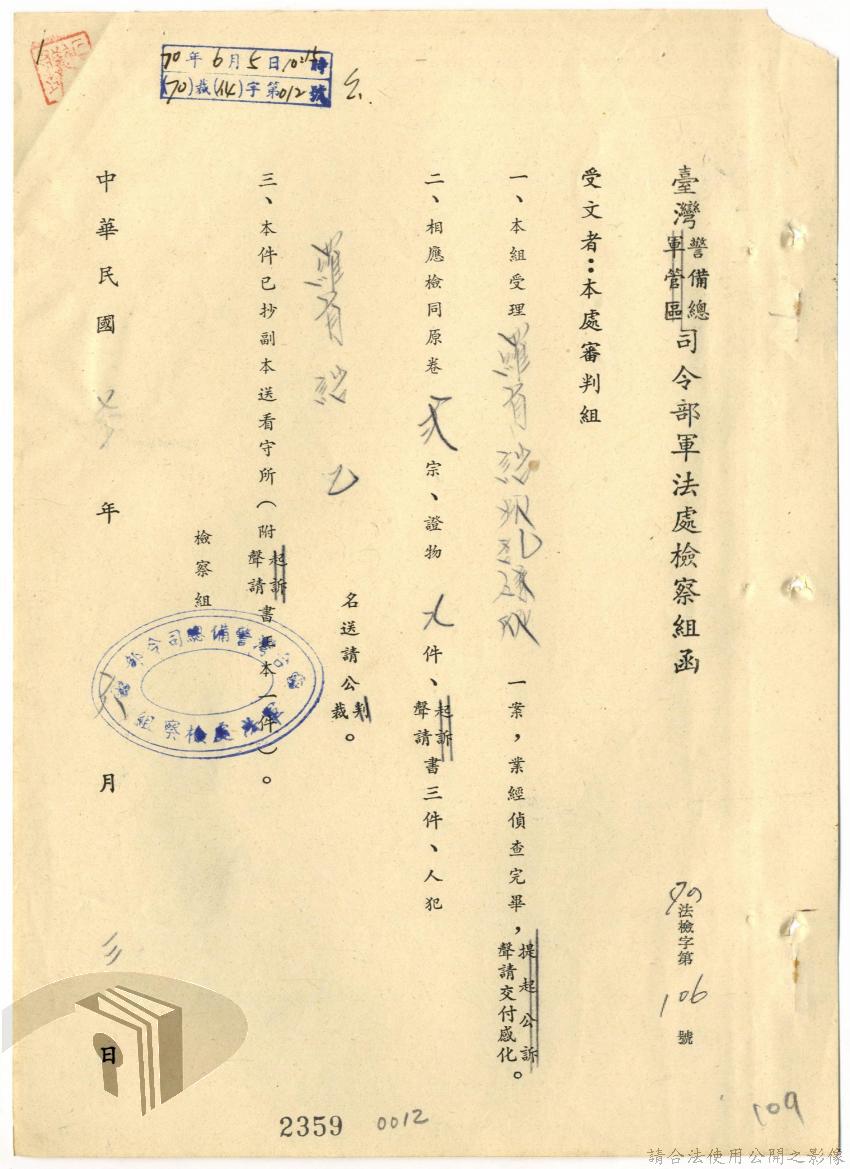 臺灣警備總軍管區司令部軍法處檢察組函
70法檢字第106號
受文者：本處審判組
一、本組受理羅有一案，業經偵查完畢，提起公訴聲請交付感化。
二、相應檢同原卷宗、證物件、起訴聲請書三件、人犯
羅有乙名送請公判裁。
三、本件已抄副本送看守所（附起訴聲請書本一件）。
檢察組
臺灣警備總司令部
軍法處檢察組
中華民國年月日
70年6月5日10:15時
(70)裁(14)字第012號
2359
0012
109
請合法使用公開之影像